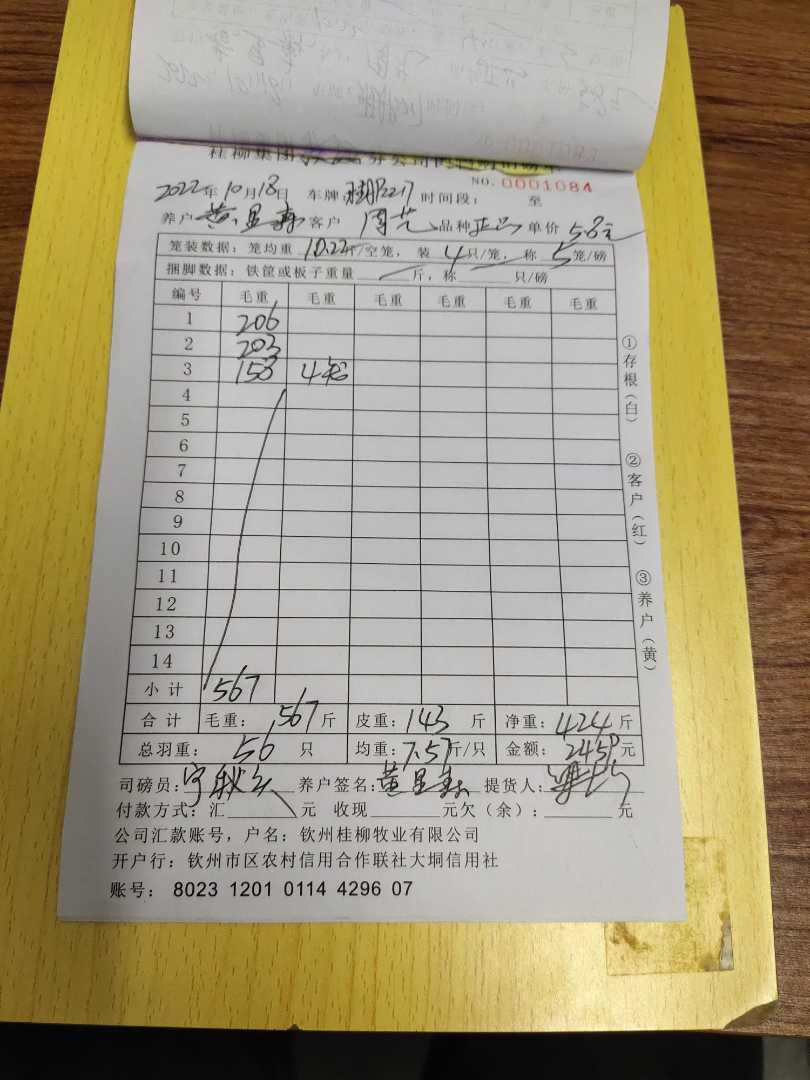 桂柳集团 分公司
NO. 0001084
2022年10月18日 车牌 2217 时间段: 至
养户 黄显森 客户 周艺 品种 正 单价 5.8元
笼装数据:笼均重 10.22斤/空笼,装 4 只/笼,称 5 笼/磅
捆脚数据:铁筐或板子重量 斤,称 只/磅
编号 毛重 毛重 毛重 毛重 毛重 毛重
1 206
2 203
3 158
4
5
6
7
8
9
10
11
12
13
14
小计 567
合计 毛重: 567 斤 皮重: 143 斤 净重: 424 斤
总羽重: 56 只 均重: 7.57斤/只 金额: 2459元
司磅员: 养户签名: 黄显森 提货人:
付款方式:汇 元 收现 元欠(余): 元
公司汇款账号,户名:钦州桂柳牧业有限公司
开户行:钦州市区农村信用合作联社大垌信用社
账号: 8023 1201 0114 4296 07
①存根(白)
②客户(红)
③养户(黄)